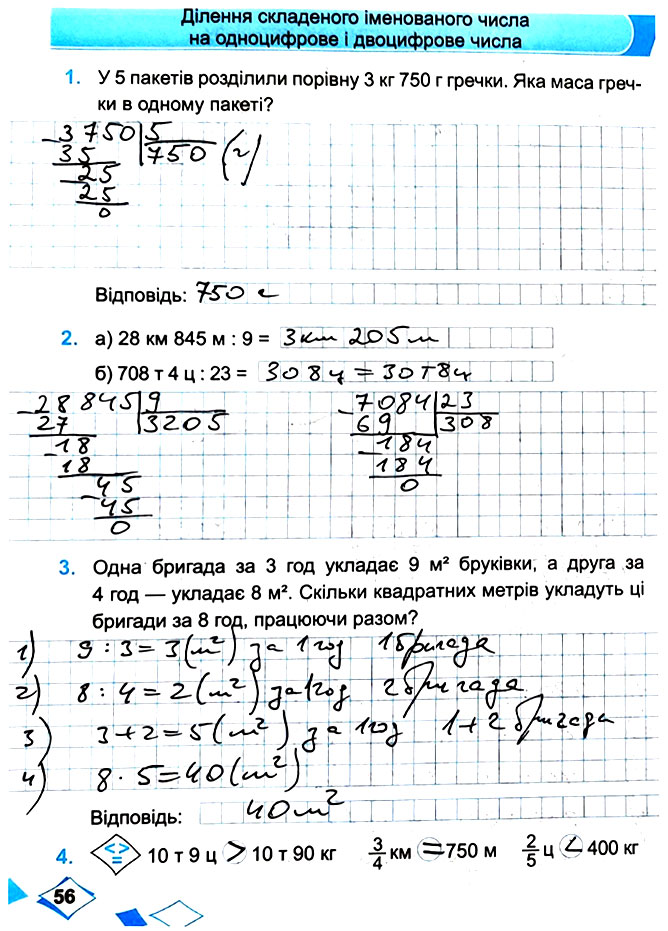 Ділення складеного іменованого числа
на одноцифрове і двоцифрове числа
1. У 5 пакетів розділили порівну 3 кг 750 г гречки. Яка маса греч-
ки в одному пакеті?
-3750 5
35 750 (г)
-25
25
0
Відповідь: 750 г
2. а) 28 км 845 м : 9 = 3 км 205 м
б) 708 т 4 ц : 23 = 308 ц = 30 т 8 ц
-28845 9
27 3205
-18
18
-45
45
0
-7084 23
69 308
-184
184
0
3. Одна бригада за 3 год укладає 9 м² бруківки, а друга за
4 год — укладає 8 м². Скільки квадратних метрів укладуть ці
бригади за 8 год, працюючи разом?
1) 9 : 3 = 3 (м²) за 1 год 1 бригада
2) 8 : 4 = 2 (м²) за 1 год 2 бригада
3) 3 + 2 = 5 (м²) за 1 год 1 + 2 бригада
4) 8 · 5 = 40 (м²)
Відповідь: 40 м²
4. <> = 10 т 9 ц > 10 т 90 кг 3/4 км = 750 м 2/5 ц < 400 кг
56